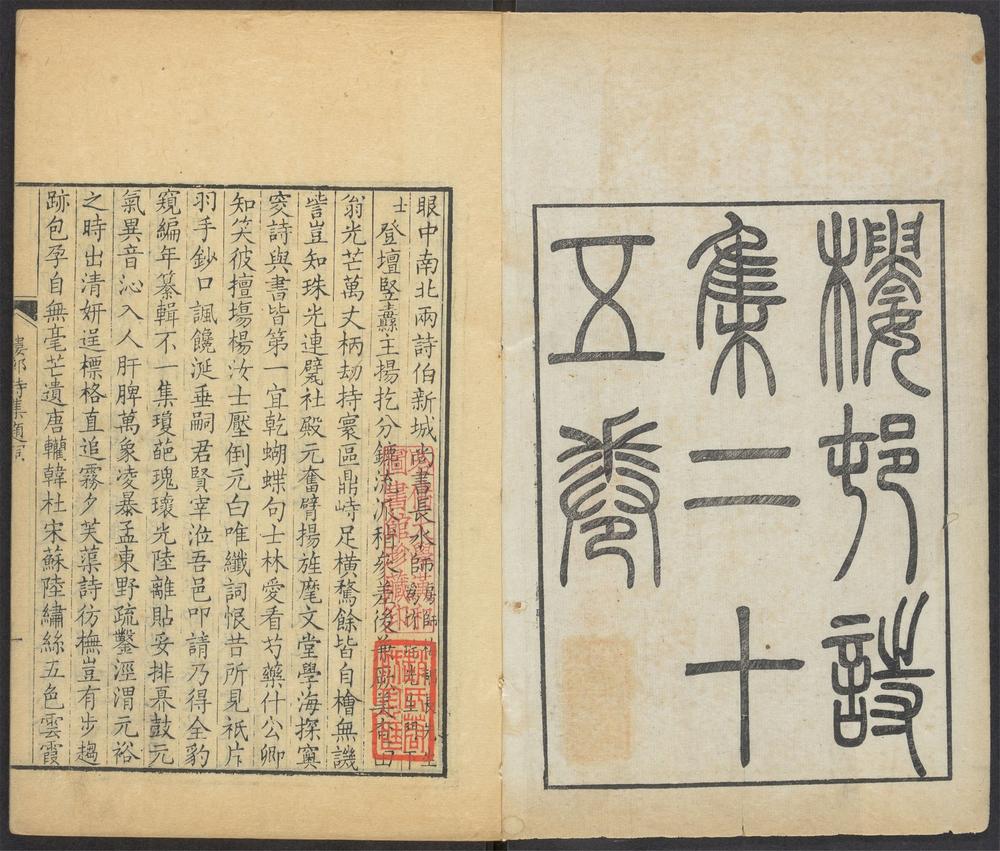 樓邨詩
集二十
五卷
眼中南北兩詩伯新城尚書長水師
士登壇豎纛主揚扢分鑣流派稍參差後來
翁光芒萬丈柄劫持寰區鼎峙足橫騖餘皆自檜無譏
訾豈知珠光連甓社殿元奮臂揚旌麾文堂學海探窔
窔詩與書皆第一宜乾蝴蝶句士林愛看芍藥什公卿
知笑彼擅場楊汝士壓倒元白唯纖詞恨昔所見祇片
羽手鈔口諷饞涎垂嗣君賢宰涖吾邑叩請乃得全豹
窺編年纂輯不一集瓊葩瑰瓌光陸離貼妥排奡鼓元
氣異音沁入人肝脾萬象凌暴孟東野疏鑿涇渭元裕
之時出清妍逞標格直追霧夕芙蕖詩彷橅豈有步趨
跡包孕自無毫芒遺唐韓杜宋蘇陸繡絲五色雲霞
樓邨詩集題詞
一